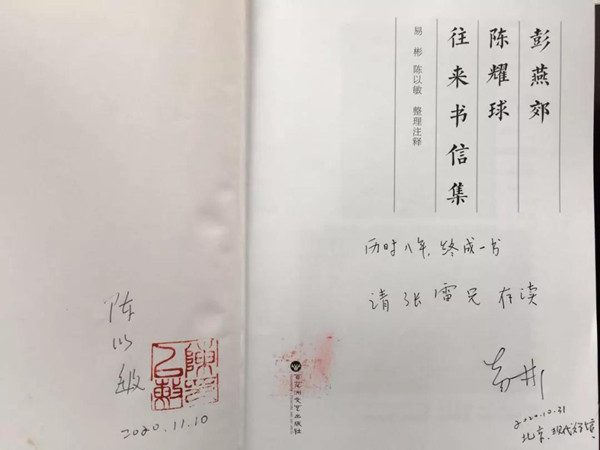 彭燕郊
陈耀球
往来书信集
易彬 陈以敏 整理注释
历时八年,终成一书
请张雷兄存读
易彬
2020.10.31
百花洲文艺出版社
陈以敏
2020.11.10